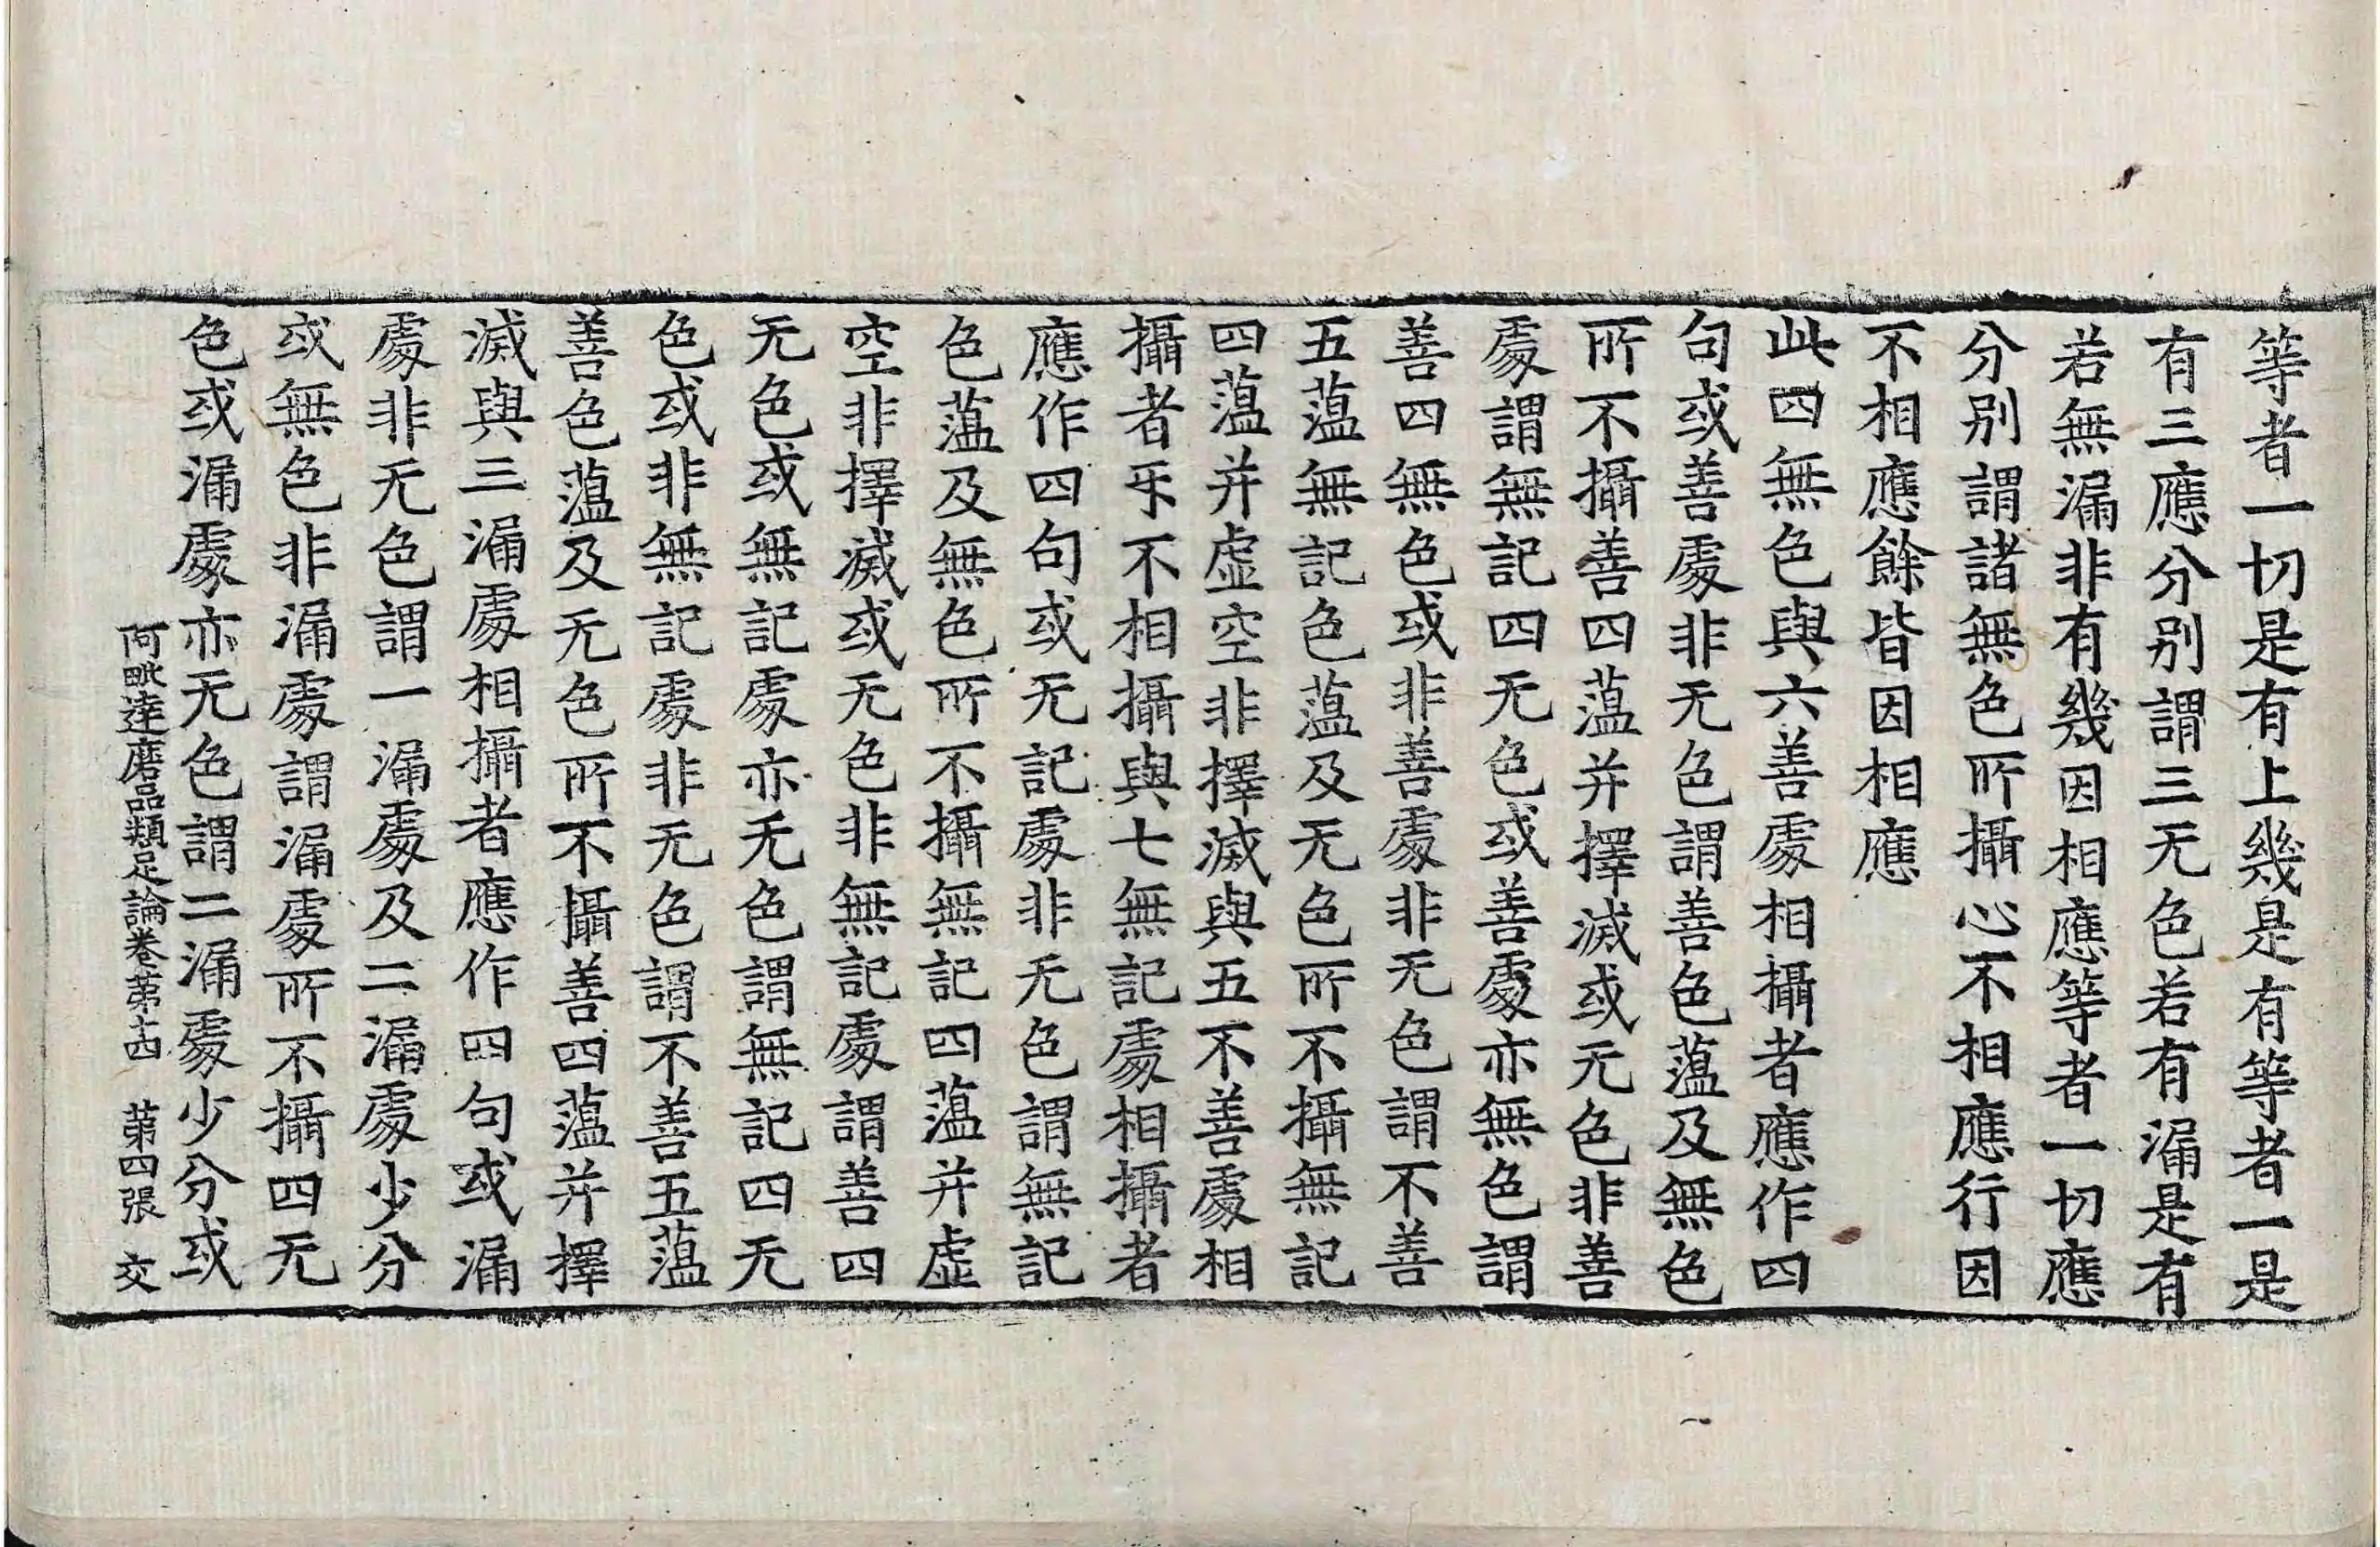 等者一切是有上幾是有等者一是
有三應分别謂三无色若有漏是有
若無漏非有幾因相應等者一切應
分别謂諸無色所攝心不相應行因
不相應餘皆因相應
此四無色與六善處相攝者應作四
句或善處非无色謂善色薀及無色
所不攝善四薀并擇滅或无色非善
處謂無記四无色或善處亦無色謂
善四無色或非善處非无色謂不善
五薀無記色薀及无色所不攝無記
四薀并虛空非擇滅與五不善處相
攝者㸦不相攝與七無記處相攝者
應作四句或无記處非无色謂無記
色薀及無色所不攝無記四薀并虛
空非擇滅或无色非無記處謂善四
无色或無記處亦无色謂無記四无
色或非無記處非无色謂不善五薀
善色薀及无色所不攝善四薀并擇
滅與三漏處相攝者應作四句或漏
處非无色謂一漏處及二漏處少分
或無色非漏處謂漏處所不攝四无
色或漏處亦无色謂二漏處少分或
阿毗達磨品類足論卷第十四　第四張　交